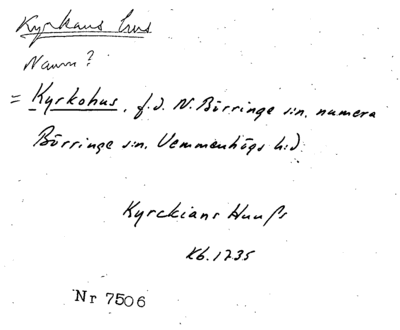 Kyrkans hus
Namn?
= Kyrkohus, f.d. N. Börringe sn, numera
Börringe sn. Vemmenhögs hd.
Kyrckians Huuſs
Kb. 1735
Nr 7506